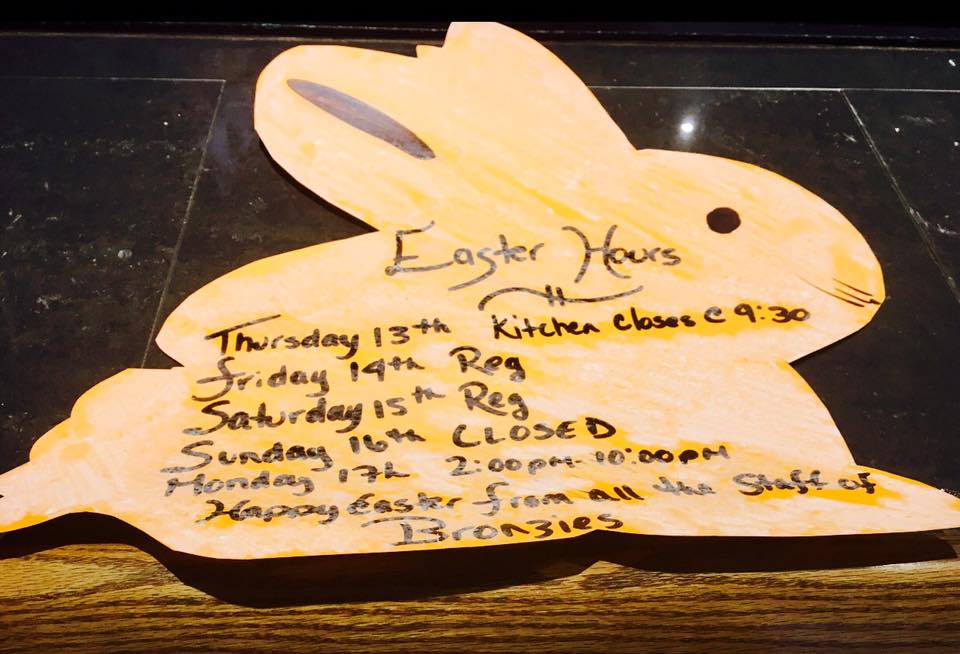 Easter Hours
Thursday 13th Kitchen Closes @ 9:30
Friday 14th Reg
Saturday 15th Reg
Sunday 16th CLOSED
Monday 17th 2:00pm-10:00pm
Happy Easter from all the Staff of
Bronzies